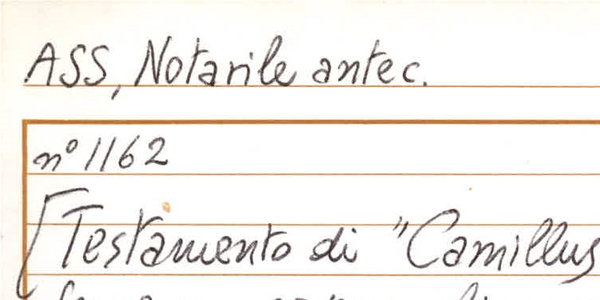 ASS, Notarile antec.
n° 1162
[Testamento di "Camillus